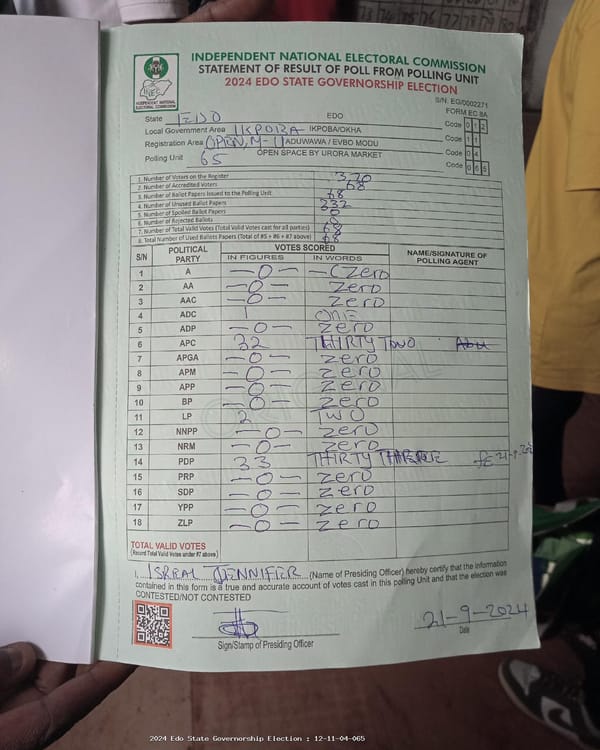 INDEPENDENT NATIONAL ELECTORAL COMMISSION
STATEMENT OF RESULT OF POLL FROM POLLING UNIT
2024 EDO STATE GOVERNORSHIP ELECTION
INEC
INDEPENDENT NATIONAL ELECTORAL COMMISSION
S/N: EG/0002271
FORM EC 8A
State EDO EDO Code 0 1 2
Local Government Area IKPOBA IKPOBA/OKHA Code 1 1
Registration Area ADUWAWA / EVBO MODU Code 0 4
Polling Unit 65 OPEN SPACE BY URORA MARKET Code 0 6 5
1. Number of Voters on the Register 370
2. Number of Accredited Voters 68
3. Number of Ballot Papers Issued to the Polling Unit
4. Number of Unused Ballot Papers 332
5. Number of Spoiled Ballot Papers 0
6. Number of Rejected Ballots 0
7. Number of Total Valid Votes (Total Valid Votes cast for all parties) 68
8. Total Number of Used Ballots Papers (Total of #5 + #6 + #7 above) 68
S/N POLITICAL PARTY VOTES SCORED NAME/SIGNATURE OF POLLING AGENT
IN FIGURES IN WORDS
1 A — 0 — — Zero
2 AA — 0 — Zero
3 AAC — 0 — Zero
4 ADC 1 ONE
5 ADP — 0 — Zero
6 APC 32 THIRTY TWO
7 APGA — 0 — Zero
8 APM — 0 — Zero
9 APP — 0 — Zero
10 BP — 0 — Zero
11 LP 2 TWO
12 NNPP — 0 — Zero
13 NRM — 0 — Zero
14 PDP 33 THIRTY
15 PRP — 0 — Zero
16 SDP — 0 — Zero
17 YPP — 0 — Zero
18 ZLP — 0 — Zero
TOTAL VALID VOTES
(Record Total Valid Votes under #7 above)
I, ISREAL JENNIFER (Name of Presiding Officer) hereby certify that the information
contained in this form is a true and accurate account of votes cast in this polling Unit and that the election was
CONTESTED/NOT CONTESTED
21-9-2024
Sign/Stamp of Presiding Officer Date
2024 Edo State Governorship Election : 12-11-04-065